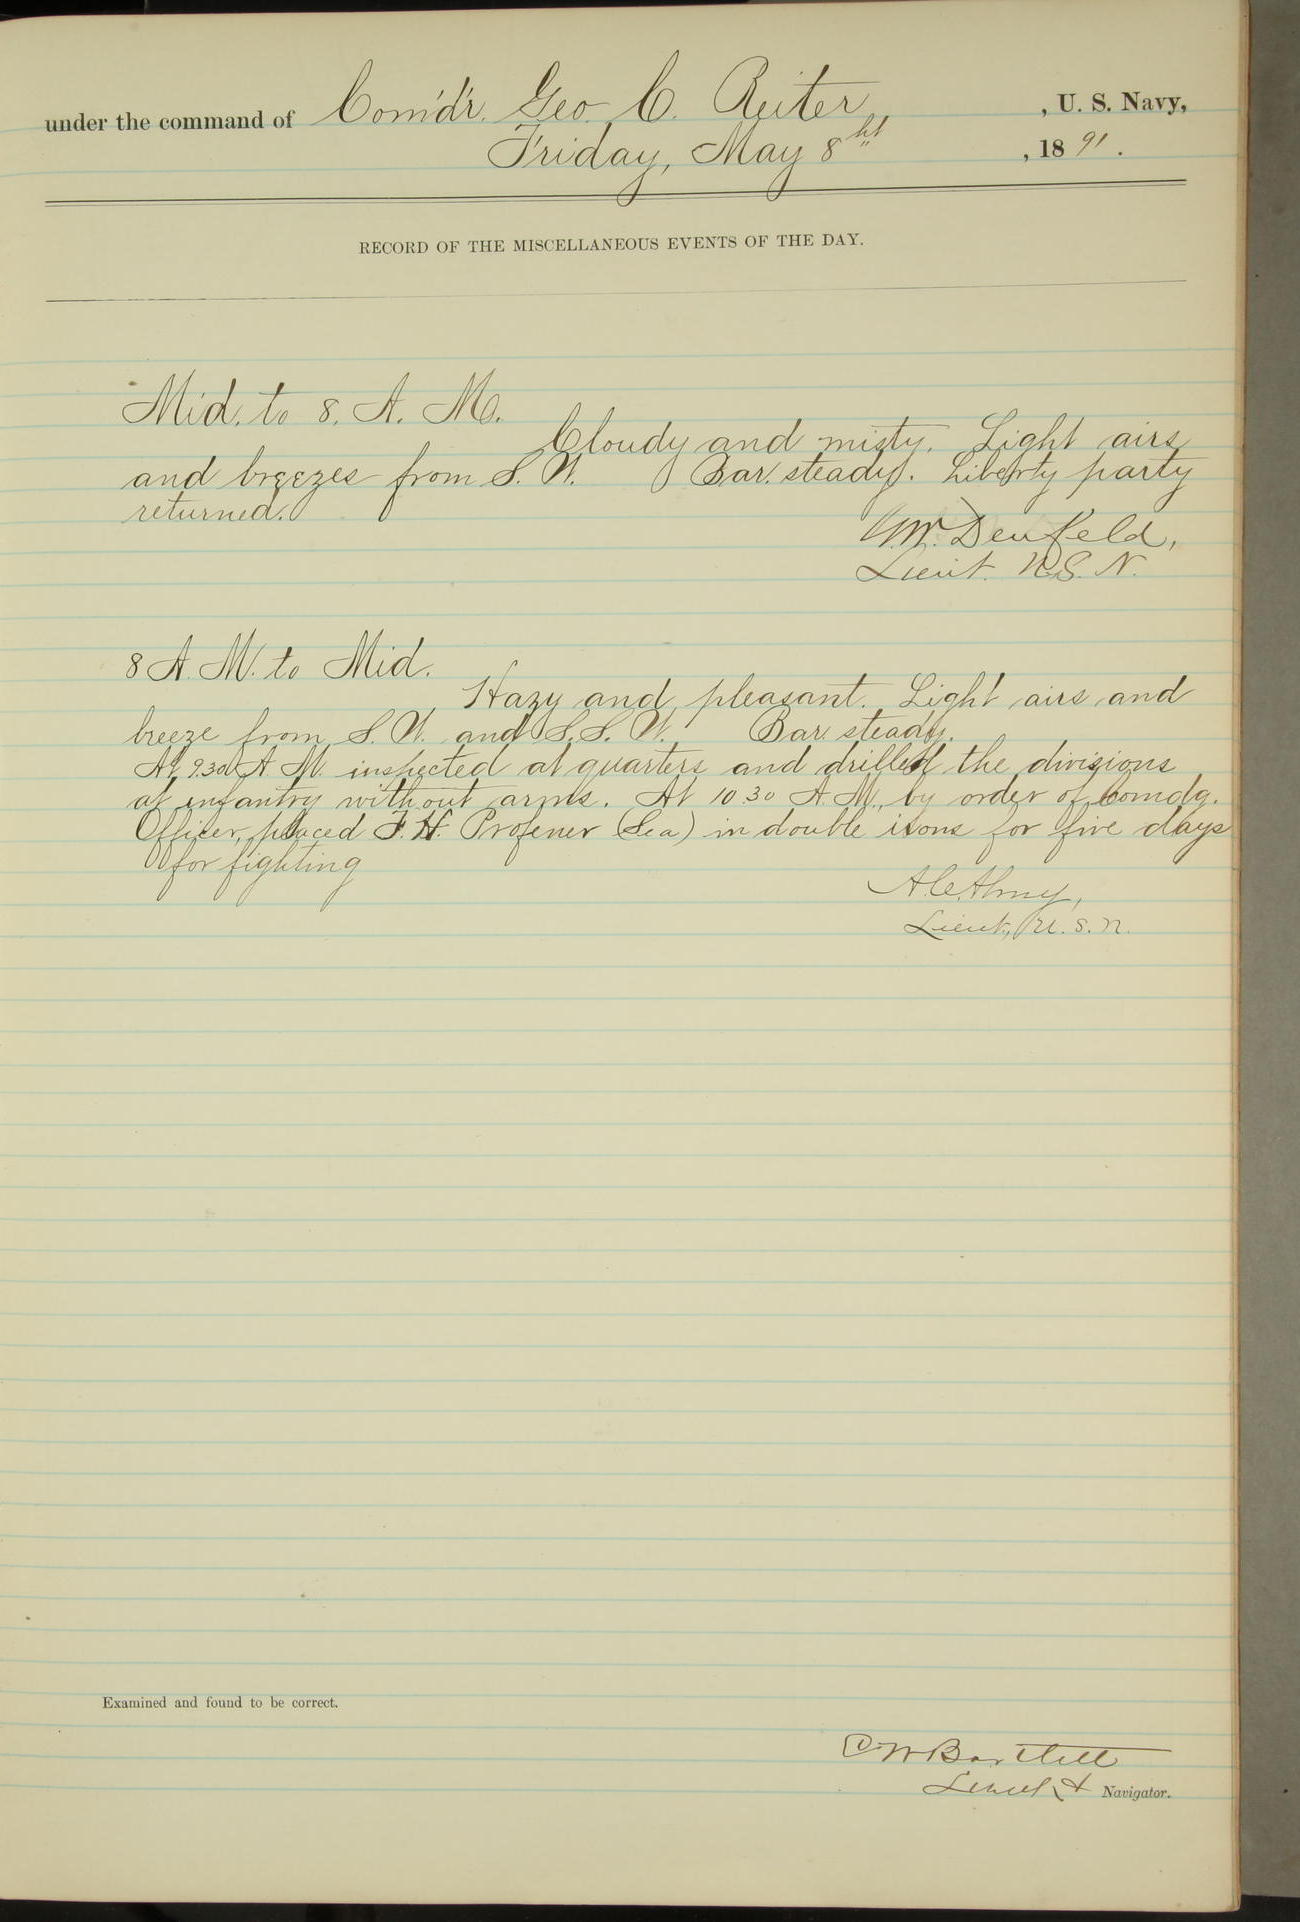 under the command of Com'd'r. Geo. C. Reiter, U. S. Navy,
Friday, May 8th, 1891.
RECORD OF THE MISCELLANEOUS EVENTS OF THE DAY.
Mid. to 8. A. M.
Cloudy and misty. Light airs
and breezes from S. W. Bar. steady. Liberty party
returned.
G.W. Denfeld,
Lieut. U.S. N.
8 A. M. to Mid.
Hazy and pleasant. Light airs and
breeze from S. W. and S. S. W. Bar. steady.
At 9.30 A. M. inspected at quarters and drilled the divisions
at infantry without arms. At 10.30 A. M., by order of Comdg.
Officer, placed F. H. Profener (Sea) in double irons for five days
for fighting
A.C. Almy,
Lieut., U. S. N.
Examined and found to be correct.
C W Bartlett
Lieut & Navigator.